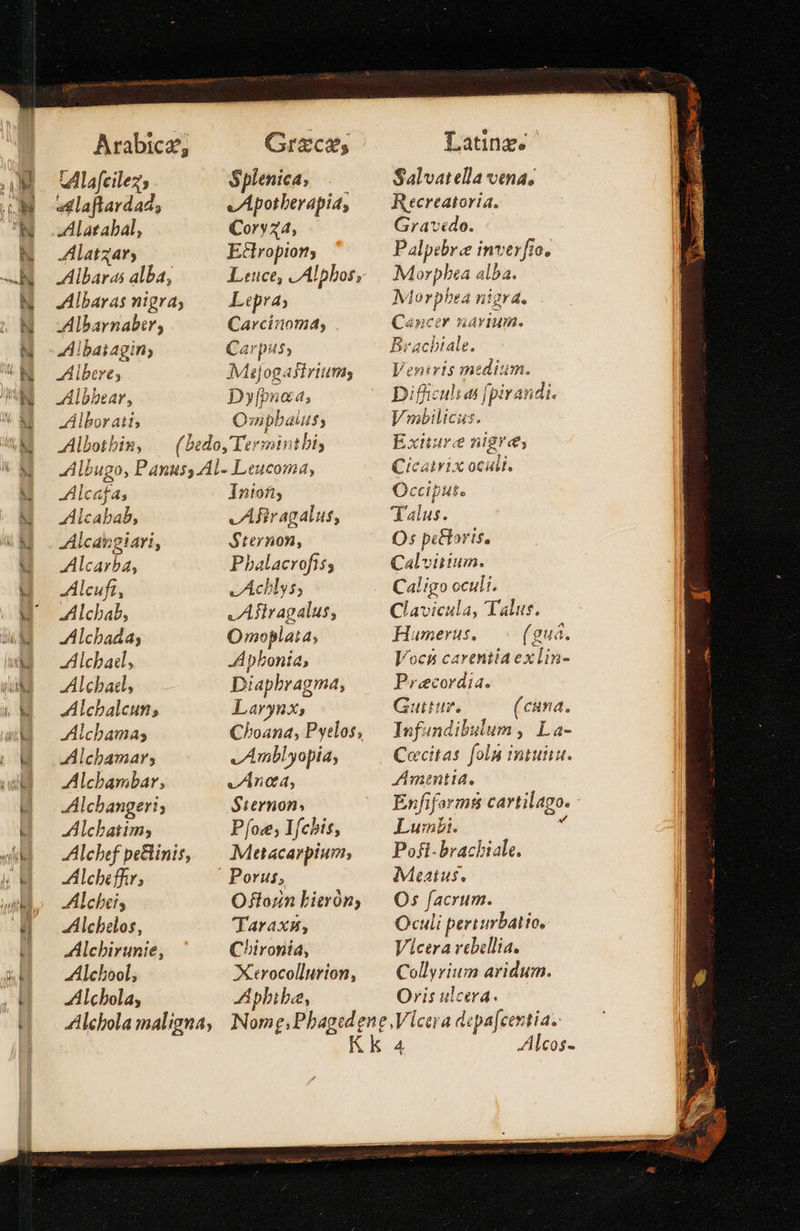 Arabicæ, Græcæ, Latinæ.
Alaſeilez, Splenica, Salvatella vena.
Alaſtardad, Apotherapia, Recreatoria.
Alatabal, Coryza, Gravedo.
Alatzar, Ectropion, Palpebræ inverſio.
Albaras alba, Leuce, Alphos, Morphea alba.
Albaras nigra, Lepra, Morphea nigra.
Albarnaber, Carcinoma, Cancer narium.
Albatagin, Carpus, Brachiale.
Albere, Meſogaſtrium, Ventris medium.
Albhear, Dyſpnœa, Difficultas ſpirandi.
Alborati, Omphalus, Vmbilicus.
Albothin, (bedo, Termintbi, Exituræ nigræ,
Albugo, Panus, Al- Leucoma, Cicatrix oculi.
Alcafa, Inion, Occiput.
Alcahab, Aſtragalus, Talus.
Alcangiari, Sternon, Os pectoris.
Alcarba, Phalacroſis, Calvitium.
Alcuſt, Achlys, Caligo oculi.
Alchab, Aſtragalus, Clavicula, Talus.
Alchada, Omoplata, Humerus. (guâ.
Alchael, Aphonia, Vocis carentia ex lin-
Alchael, Diaphragma, Præcordia.
Alchalcun, Larynx, Guttur. (cuna.
Alchama, Choana, Pyelos, Infundibulum, La-
Alchamar, Amblyopia, Cœcitas ſolis intuitu.
Alchambar, Anœa, Amentia.
Alchangeri, Sternon, Enſiformis cartilago.
Alchatim, Pſoæ, Iſchis, Lumbi.
Alchef pectinis, Metacarpium, Poſt-brachiale.
Alcheffir, Porus, Meatus.
Alchei, Oſtoün hieròn, Os ſacrum.
Alchelos, Taraxis, Oculi perturbatio.
Alchirunie, Chironia, Vlcera rebellia.
Alchool, Xerocollurion, Collyrium aridum.
Alchola, Aphthæ, Oris ulcera.
Alchola maligna, Nome, Phagedene, Vlcera depaſcentia.
Kk 4 Alcos-